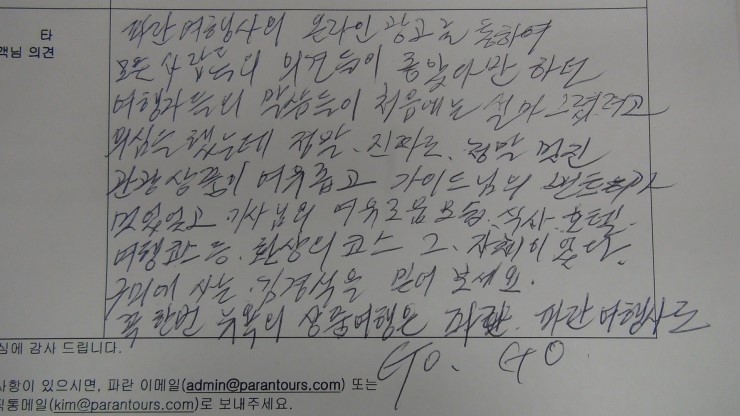 타
객님 의견
파란여행사의 온라인 광고를 통하여
모든 사람들의 의견들이 좋았다만 하던
여행자들의 말씀들이 처음에는 설마 그렇려고
의심을 했는데 정말. 진짜로. 정말 멋진
관광상품이 여유롭고 가이드님의 멘트
멋있었고 기사님의 여유로움 모습. 식사. 호텔.
여행코스 등. 환상의 코스 그. 자체이었다.
구미에 사는 김경식을 믿어 보세요.
꼭 한번 뉴욕의 상품여행은 파란. 파란여행사로
GO. GO.
심에 감사 드립니다.
사항이 있으시면, 파란 이메일(admin@parantours.com) 또는
직통메일(kim@parantours.com)로 보내주세요.